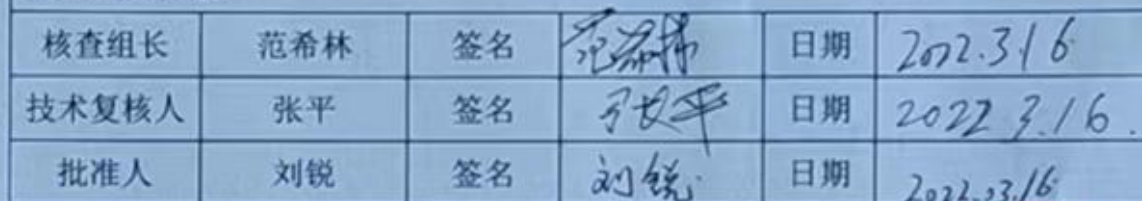 核查组长 范希林 签名 范希林 日期 2022.3.16
技术复核人 张平 签名 张平 日期 2022 3.16.
批准人 刘锐 签名 刘锐 日期 2022.03.16